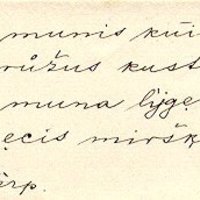 munis kūi
růžus kust
muna līgę
ęcis miršķ
ārp.